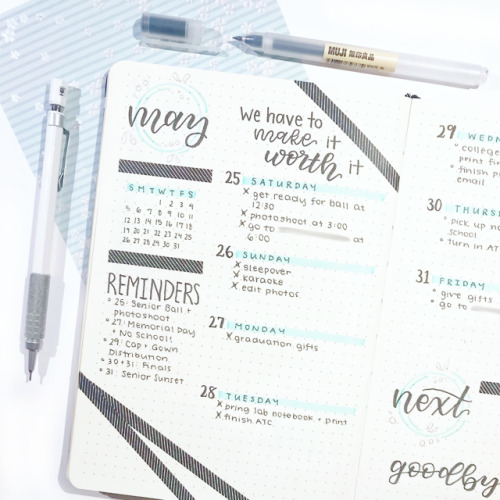 MUJI 無印良品
may
S M T W T F S
1 2 3 4
5 6 7 8 9 10 11
12 13 14 15 16 17 18
19 20 21 22 23 24 25
26 27 28 29 30 31
REMINDERS
° 25: Senior Ball +
photoshoot
° 27: Memorial Day
+ No School!
° 29: Cap + Gown
Distribution
° 30+31: Finals
° 31: Senior Sunset
We have to
make it
worth it
25 SATURDAY
x get ready for ball at
12:30
x photoshoot at 3:00
x go to at
6:00
26 SUNDAY
x sleepover
x karaoke
x edit photos
27 MONDAY
x graduation gifts
28 TUESDAY
x bring lab notebook + print
x finish ATC
29 WEDN
° college
print fin
° finish p
email
30 THURS
° pick up
school
° turn in AT
31 FRIDAY
° give gifts
° go to
next
goodby